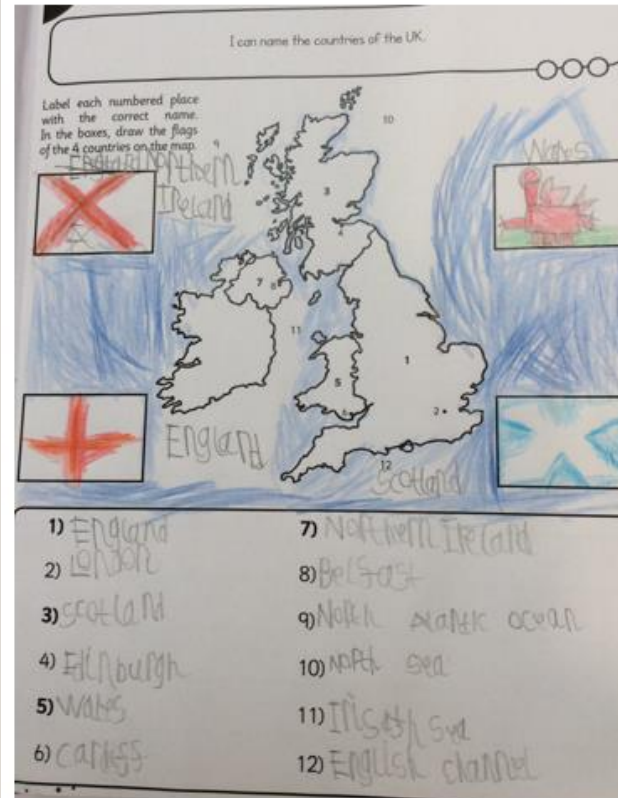 I can name the countries of the UK.
Label each numbered place
with the correct name.
In the boxes, draw the flags
of the 4 countries on the map.
England Northern
Ireland
Wales
9
10
3
4
7
8
11
1
5
2
6
12
England
Scotland
1) England
2) London
3) scotland
4) Edinburgh
5) Wales
6) Cardiff
7) Northern Ireland
8) Belfast
9) North atlantic ocean
10) North sea
11) Irish sea
12) English channel